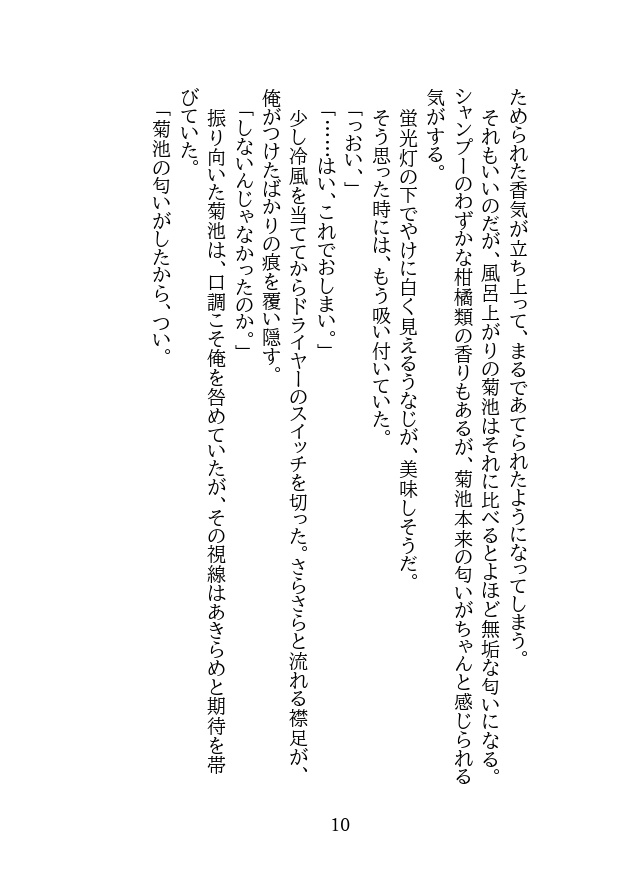 ためられた香気が立ち上って、まるであてられたようになってしまう。
　それもいいのだが、風呂上がりの菊池はそれに比べるとよほど無垢な匂いになる。
シャンプーのわずかな柑橘類の香りもあるが、菊池本来の匂いがちゃんと感じられる
気がする。
　蛍光灯の下でやけに白く見えるうなじが、美味しそうだ。
　そう思った時には、もう吸い付いていた。
「っおい、」
「……はい、これでおしまい。」
　少し冷風を当ててからドライヤーのスイッチを切った。さらさらと流れる襟足が、
俺がつけたばかりの痕を覆い隠す。
「しないんじゃなかったのか。」
　振り向いた菊池は、口調こそ俺を咎めていたが、その視線はあきらめと期待を帯
びていた。
「菊池の匂いがしたから、つい。
10